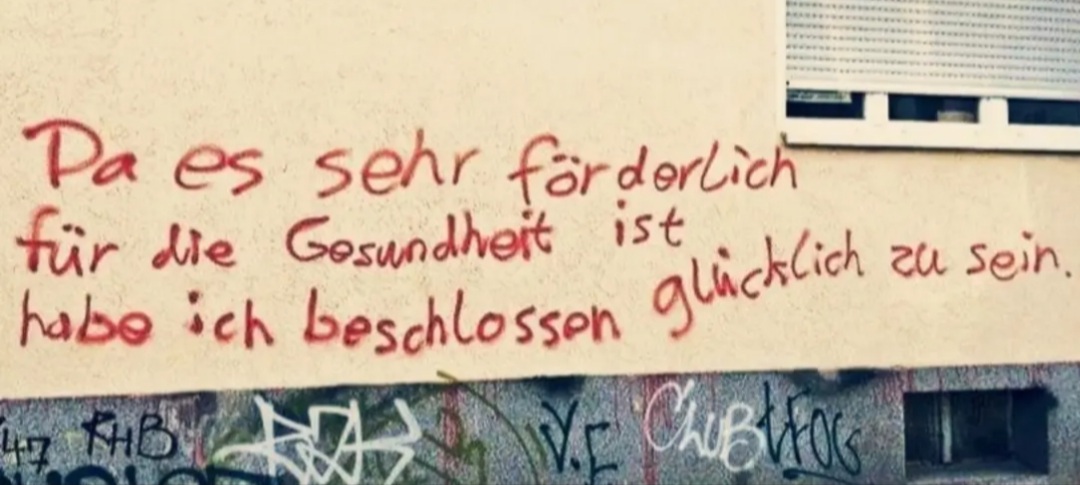 Da es sehr förderlich
für die Gesundheit ist
habe ich beschlossen glücklich zu sein.
47 RHB V.E CLUB tFOG